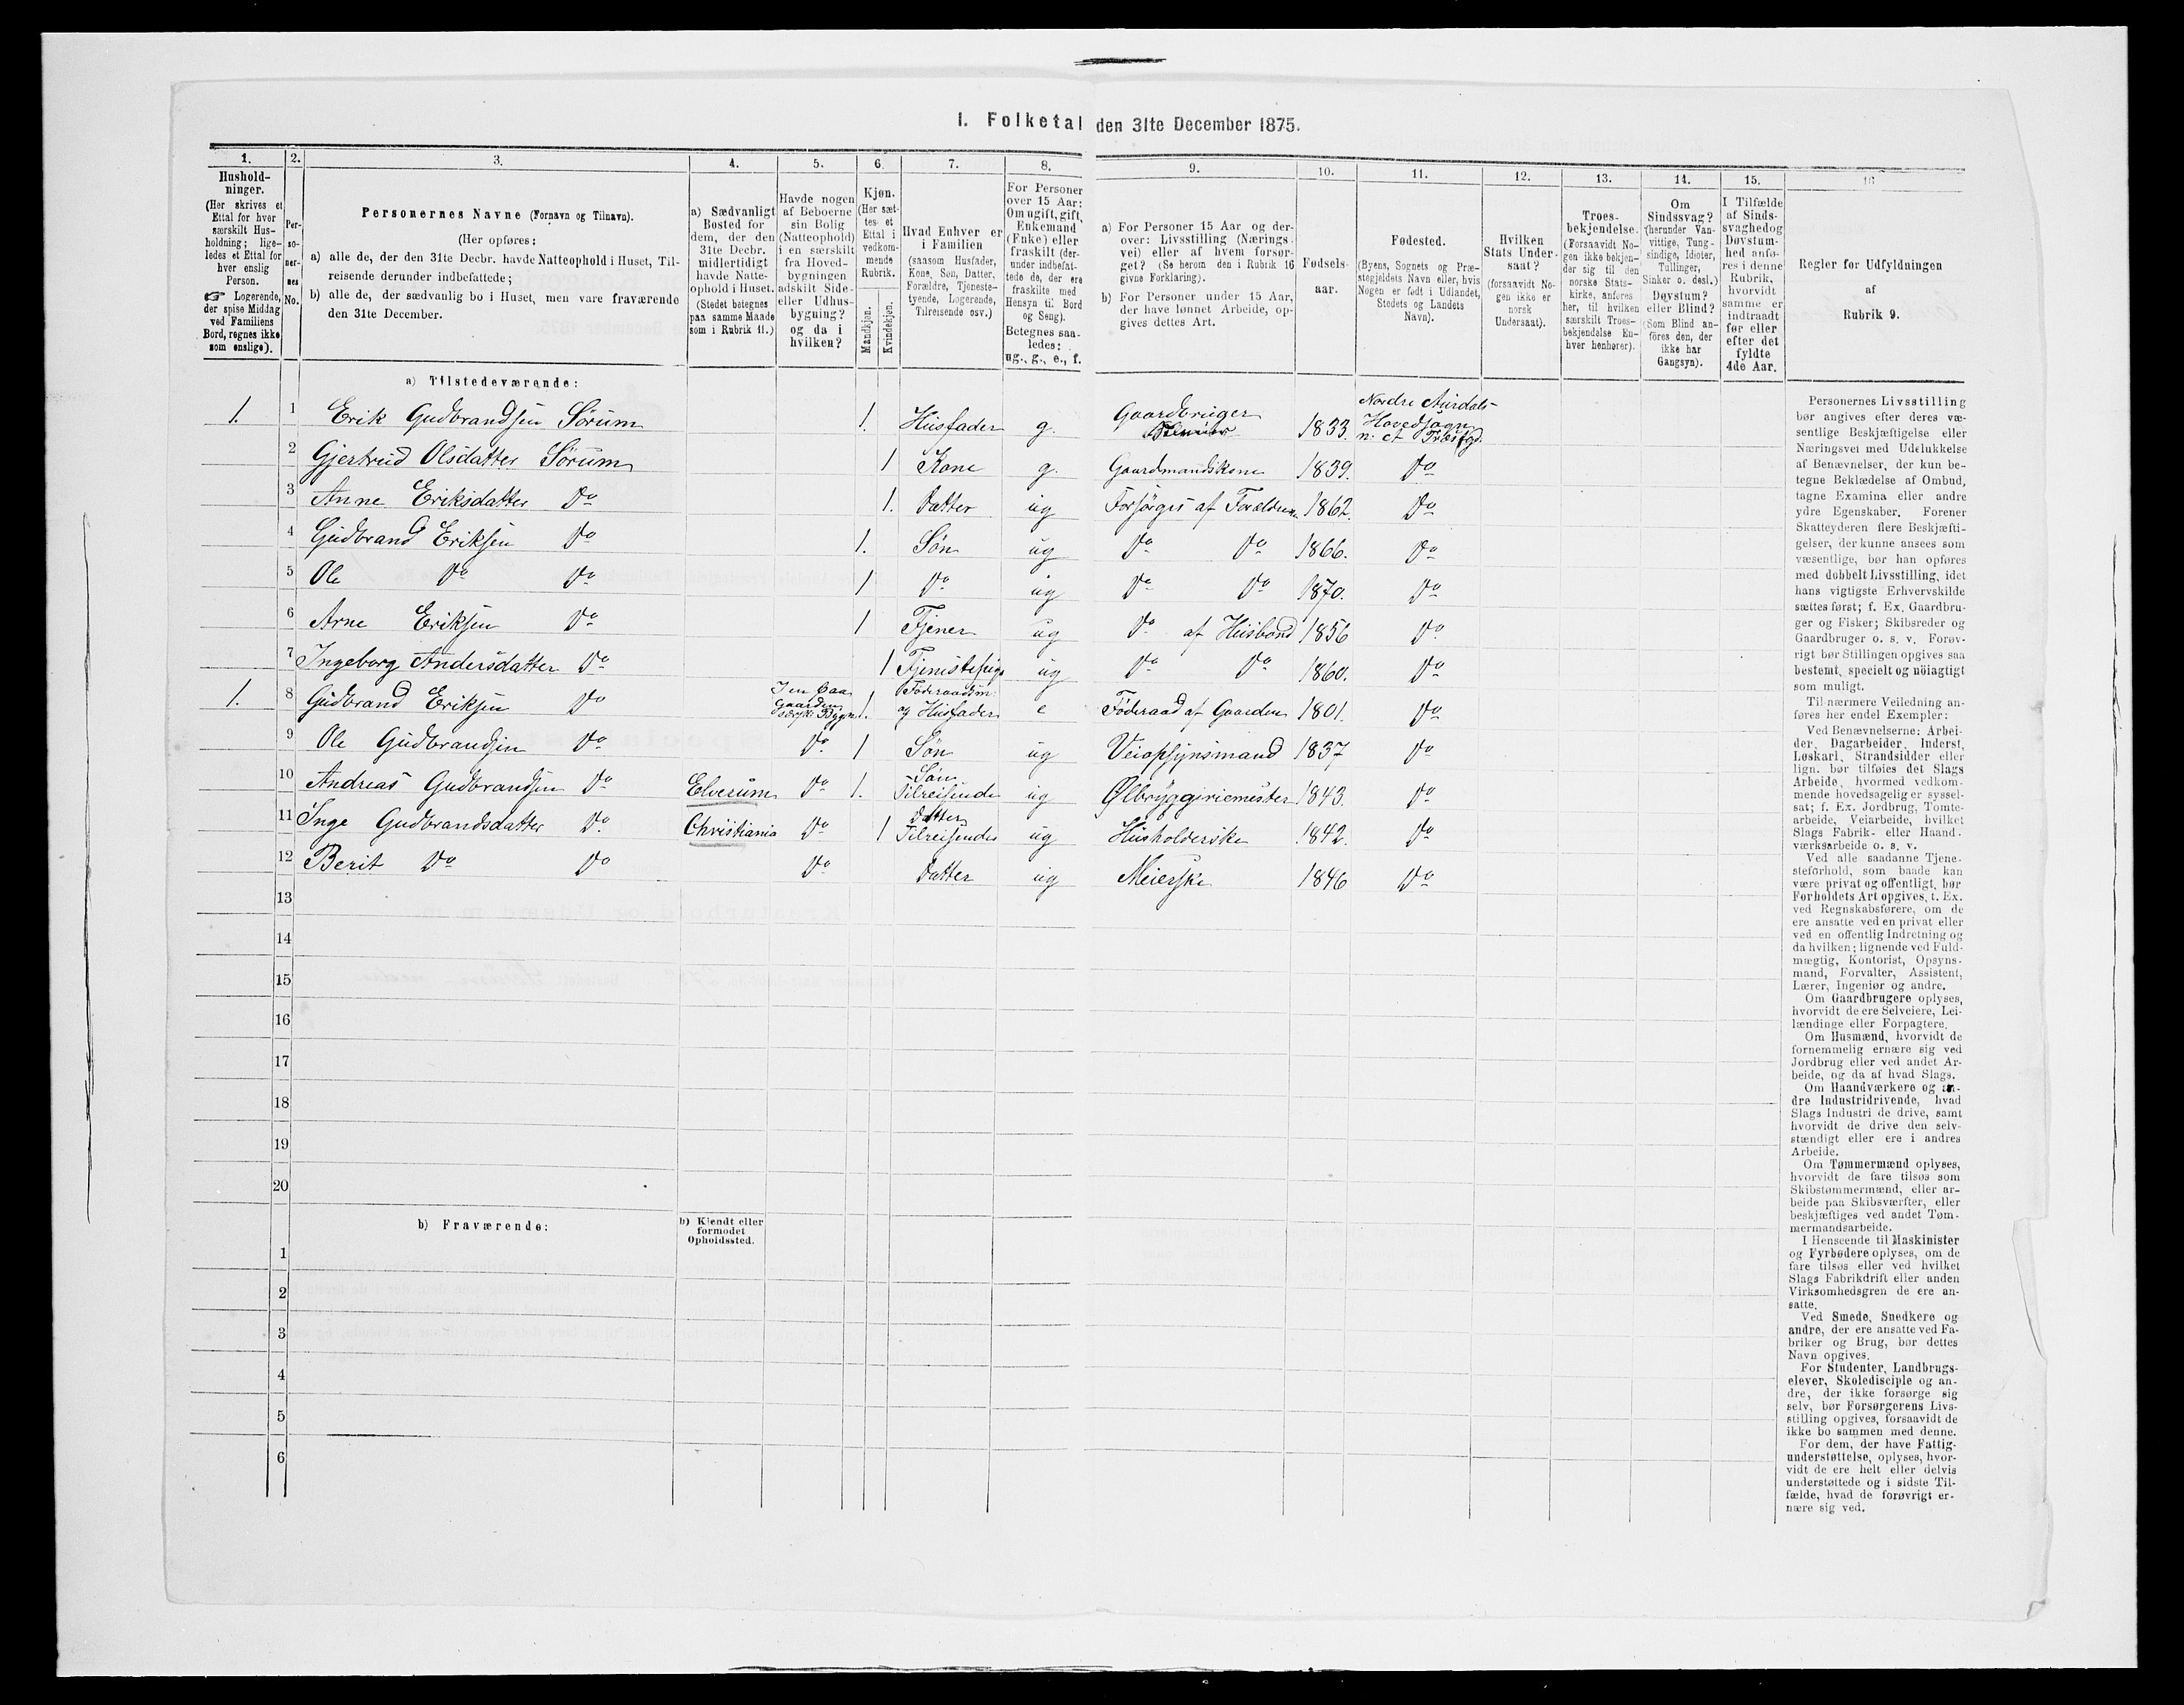 I. Folketal den 31te December 1875.
1. 2. 3. 4. 5. 6. 7. 8. 9. 10. 11. 12. 13. 14. 15. 16
Hushold-
ninger.
(Her skrives et
Ettal for hver
særskilt Hus-
holdning; lige-
ledes et Ettal for
hver enslig
Person.
☞ Logerende,
der spise Middag
ved Familiens
Bord, regnes ikke
som enslige).
Per-
so-
ner-
nes
No.
Personernes Navne (Fornavn og Tilnavn).
(Her opføres:
a) alle de, der den 31te Decbr. havde Natteophold i Huset, Til-
reisende derunder indbefattede;
b) alle de, der sædvanlig bo i Huset, men vare fraværende
den 31te December.
a) Sædvanligt
Bosted for
dem, der den
31te Decbr.
midlertidigt
havde Natte-
ophold i Huset.
(Stedet betegnes
paa samme Maade
som i Rubrik 11.)
Havde nogen
af Beboerne
sin Bolig
(Natteophold)
i en særskilt
fra Hoved-
bygningen
adskilt Side-
eller Udhus-
bygning?
og da i
hvilken?
Kjøn.
(Her sæt-
tes et
Ettal i
vedkom-
mende
Rubrik.
Mandkjøn.
Kvindekjøn.
Hvad Enhver er
i Familien
(saasom Husfader,
Kone, Søn, Datter,
Forældre, Tjeneste-
tyende, Logerende,
Tilreisende osv.)
For Personer
over 15 Aar:
Om ugift, gift,
Enkemand
(Enke) eller
fraskilt (der-
under indbefat-
tede de, der ere
fraskilte med
Hensyn til Bord
og Seng).
Betegnes saa-
ledes:
ug., g., e., f.
a) For Personer 15 Aar og der-
over: Livsstilling (Nærings-
vei) eller af hvem forsør-
get? (Se herom den i Rubrik 16
givne Forklaring).
b) For Personer under 15 Aar,
der have lønnet Arbeide, op-
gives dettes Art.
Fødsels-
aar.
Fødested.
(Byens, Sognets og Præ-
stegjeldets Navn eller, hvis
Nogen er født i Udlandet,
Stedets og Landets
Navn).
Hvilken
Stats Under-
saat?
(forsaavidt No-
gen ikke er
norsk
Undersaat).
Troes-
bekjendelse.
(Forsaavidt No-
gen ikke bekjen-
der sig til den
norske Stats-
kirke, anføres
her, til hvilken
særskilt Troes-
bekjendelse En-
hver henhører).
Om
Sindssvag?
(herunder Van-
vittige, Tung-
sindige, Idioter,
Tullinger,
Sinker o. desl.)
Døvstum?
eller Blind?
(Som Blind an-
føres den, der
ikke har
Gangsyn).
I Tilfælde
af Sinds-
svaghed og
Døvstum-
hed anfø-
res i denne
Rubrik,
hvorvidt
samme er
indtraadt
før eller
efter det
fyldte
4de Aar.
Regler for Udfyldningen
af
Rubrik 9.
a) Tilstedeværende:
1. 1 Erik Gudbrandsen Sørum 1. Husfader g. Gaardbruger 1833. Nordre Aurdals-
Hovedsogn
n. A Præstgd.
2 Gjertrud Olsdatter Sørum 1 Kone g. Gaardmandskone 1839. Do
3 Anne Eriksdatter Do 1. Datter ug Forsørges af Forældrene 1862. Do
4 Gudbrand Eriksen Do 1. Søn ug Do Do 1866. Do
5 Ole Do Do 1 Do ug Do Do 1870. Do
6 Arne Eriksen Do 1 Tjener ug Do af Husbond 1856 Do
7 Ingeborg Andersdatter Do 1 Tjenistepige ug Do Do 1860. Do
1. 8 Gudbrand Eriksen Do I en paa
Gaarden
særsk: Bygn. 1. Föderaadsm:
og Husfader e Föderaad af Gaarden 1801. Do
9 Ole Gudbrandsen Do Do 1 Søn ug Veiopsynsmand 1837 Do
10 Andreas Gudbrandsen Do Elverum Do 1. Søn
Tilreisende ug Ølbryggeriemester 1843. Do
11 Inge Gudbrandsdatter Do Christiania Do 1 Datter
Tilreisendes ug Husholderske 1842. Do
12 Berit Do Do Do Datter ug Meierske 1846 Do
13
14
15
16
17
18
19
20
b) Fraværende:
b) Kjendt eller
formodet
Opholdssted.
1
2
3
4
5
6
Personernes Livsstilling
bør angives efter deres væ-
sentlige Beskjæftigelse eller
Næringsvei med Udelukkelse
af Benævnelser, der kun be-
tegne Beklædelse af Ombud,
tagne Examina eller andre
ydre Egenskaber. Forener
Skatteyderen flere Beskjæfti-
gelser, der kunne ansees som
væsentlige, bør han opføres
med dobbelt Livsstilling, idet
hans vigtigste Erhvervskilde
sættes først; f. Ex. Gaardbru-
ger og Fisker; Skibsreder og
Gaardbruger o. s. v. Forøv-
rigt bør Stillingen opgives saa
bestemt, specielt og nöiagtigt
som muligt.
Til nærmere Veiledning an-
føres her endel Exempler:
Ved Benævnelserne: Arbei-
der, Dagarbeider, Inderst,
Løskarl, Strandsidder eller
lign. bør tilføies det Slags
Arbeide, hvormed vedkom-
mende hovedsagelig er syssel-
sat; f. Ex. Jordbrug, Tomte-
arbeide, Veiarbeide, hvilket
Slags Fabrik- eller Haand-
værksarbeide o. s. v.
Ved alle saadanne Tjene-
steforhold, som baade kan
være privat og offentligt, bør
Forholdets Art opgives, t. Ex.
ved Regnskabsførere, om de
ere ansatte ved en privat eller
ved en offentlig Indretning og
da hvilken; lignende ved Fuld-
mægtig, Kontorist, Opsyns-
mand, Forvalter, Assistent,
Lærer, Ingeniør og andre.
Om Gaardbrugere oplyses,
hvorvidt de ere Selveiere, Lei-
lændinge eller Forpagtere.
Om Husmænd, hvorvidt de
fornemmelig ernære sig ved
Jordbrug eller ved andet Ar-
beide, og da af hvad Slags.
Om Haandværkere og an-
dre Industridrivende, hvad
Slags Industri de drive, samt
hvorvidt de drive den selv-
stændigt eller ere i andres
Arbeide.
Om Tømmermænd oplyses,
hvorvidt de fare tilsøs som
Skibstømmermænd, eller ar-
beide paa Skibsværfter, eller
beskjæftiges ved andet Tøm-
mermandsarbeide.
I Henseende til Maskinister
og Fyrbødere oplyses, om de
fare tilsøs eller ved hvilket
Slags Fabrikdrift eller anden
Virksomhedsgren de ere an-
satte.
Ved Smede, Snedkere og
andre, der ere ansatte ved Fa-
briker og Brug, bør dettes
Navn opgives.
For Studenter, Landbrugs-
elever, Skoledisciple og an-
dre, der ikke forsørge sig
selv, bør Forsørgerens Livs-
stilling opgives, forsaavidt de
ikke bo sammen med denne.
For dem, der have Fattig-
understøttelse, oplyses, hvor-
vidt de ere helt eller delvis
understøttede og i sidste Til-
fælde, hvad de forøvrigt er-
nære sig ved.